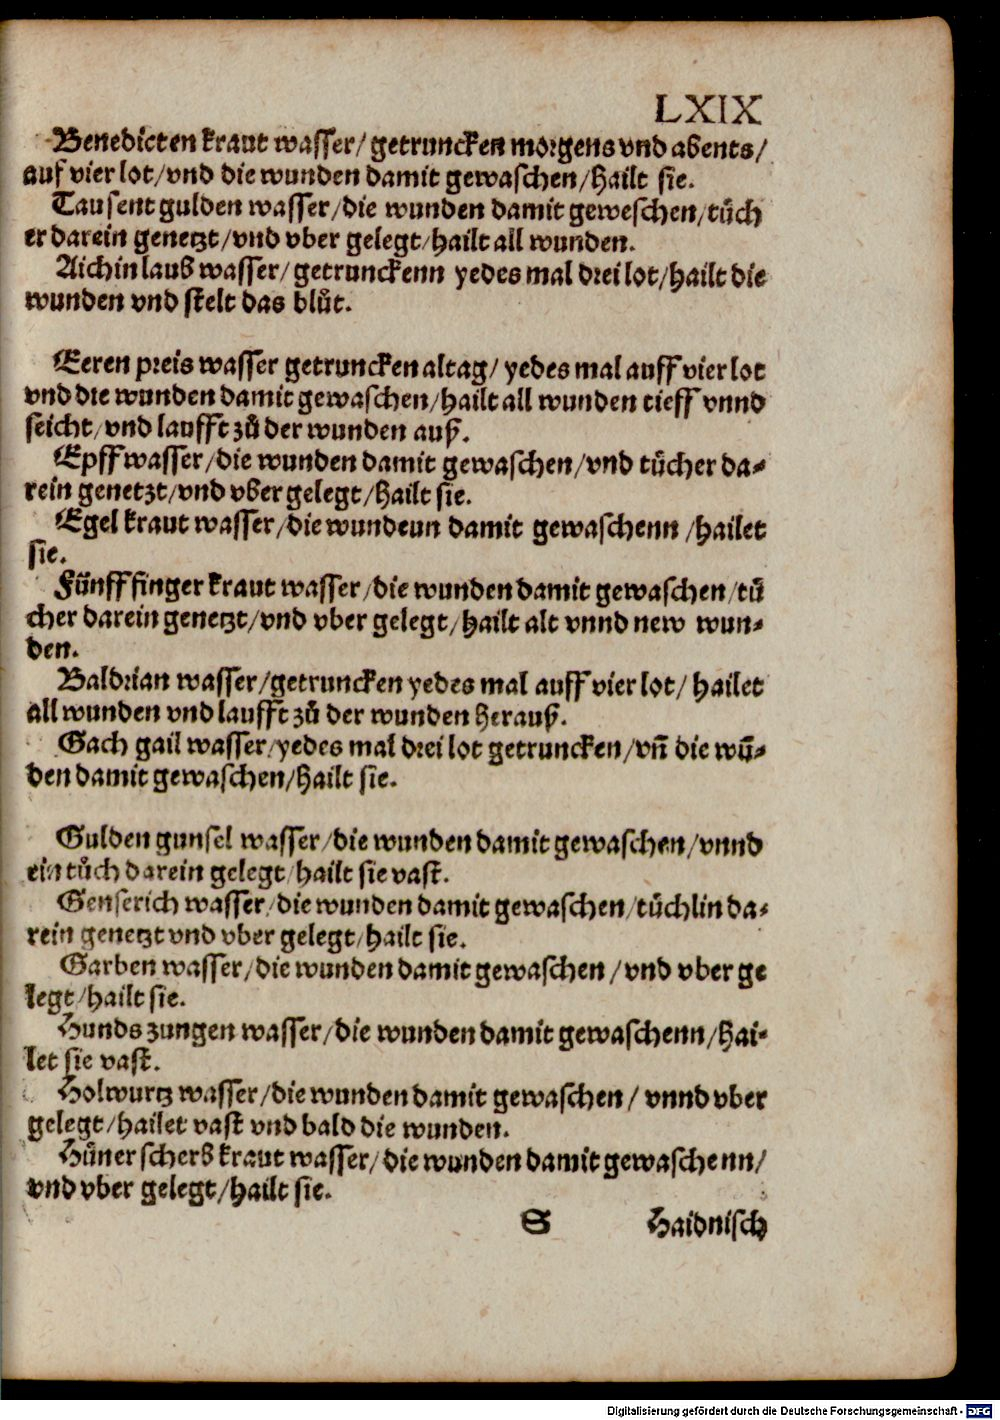 LXIX
Benedicten kraut wasser/ getruncken morgens vnd abents/
auf vier lot/vnd die wunden damit gewaschen/hailt sie.
Tausent gulden wasser/die wunden damit geweschen/tuͤch
er darein genetzt/vnd vber gelegt/hailt all wunden.
Aichin laub wasser/ getrunckenn yedes mal drei lot/hailt die
wunden vnd stelt das bluͦt.
Eeren preis wasser getruncken altag/ yedes mal auff vier lot
vnd die wunden damit gewaschen/hailt all wunden tieff vnnd
seicht/vnd laufft zuͦ der wunden auß.
Epff wasser/die wunden damit gewaschen/vnd tuͤcher da⸗
rein genetzt/vnd vber gelegt/hailt sie.
Egel kraut wasser/die wundeun damit gewaschenn /hailet
sie.
Fünff finger kraut wasser/die wunden damit gewaschen/tuͤ
cher darein genetzt/vnd vber gelegt/hailt alt vnnd new wun⸗
den.
Baldrian wasser/getruncken yedes mal auff vier lot/ hailet
all wunden vnd laufft zuͦ der wunden herauß.
Gach gail wasser/yedes mal drei lot getruncken/vn̄ die wū⸗
den damit gewaschen/hailt sie.
Gulden gunsel wasser/die wunden damit gewaschen/vnnd
ein tuͦch darein gelegt/hailt sie vast.
Genserich wasser/die wunden damit gewaschen/tuͤchlin da⸗
rein genetzt vnd vber gelegt/hailt sie.
Garben wasser/die wunden damit gewaschen/vnd vber ge
legt/hailt sie.
Hunds zungen wasser/die wunden damit gewaschenn/hai⸗
let sie vast.
Holwurtz wasser/die wunden damit gewaschen/ vnnd vber
gelegt/hailet vast vnd bald die wunden.
Huͤner scherb kraut wasser/die wunden damit gewaschenn/
vnd vber gelegt/hailt sie.
S Haidnisch
Digitalisierung gefördert durch die Deutsche Forschungsgemeinschaft - DFG